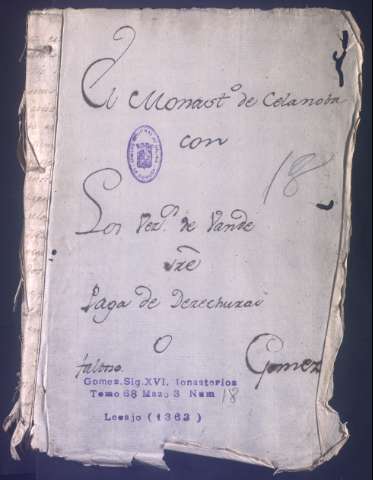 El Monast.º de Celanova
con
18
Los Vez.ºs de Vande
Sre
Paga de Derechuras
O
Gomez
Gomez.Sig.XVI. Monasterios
Tomo 68 Mazo 3 Num 18
Legajo (1363)